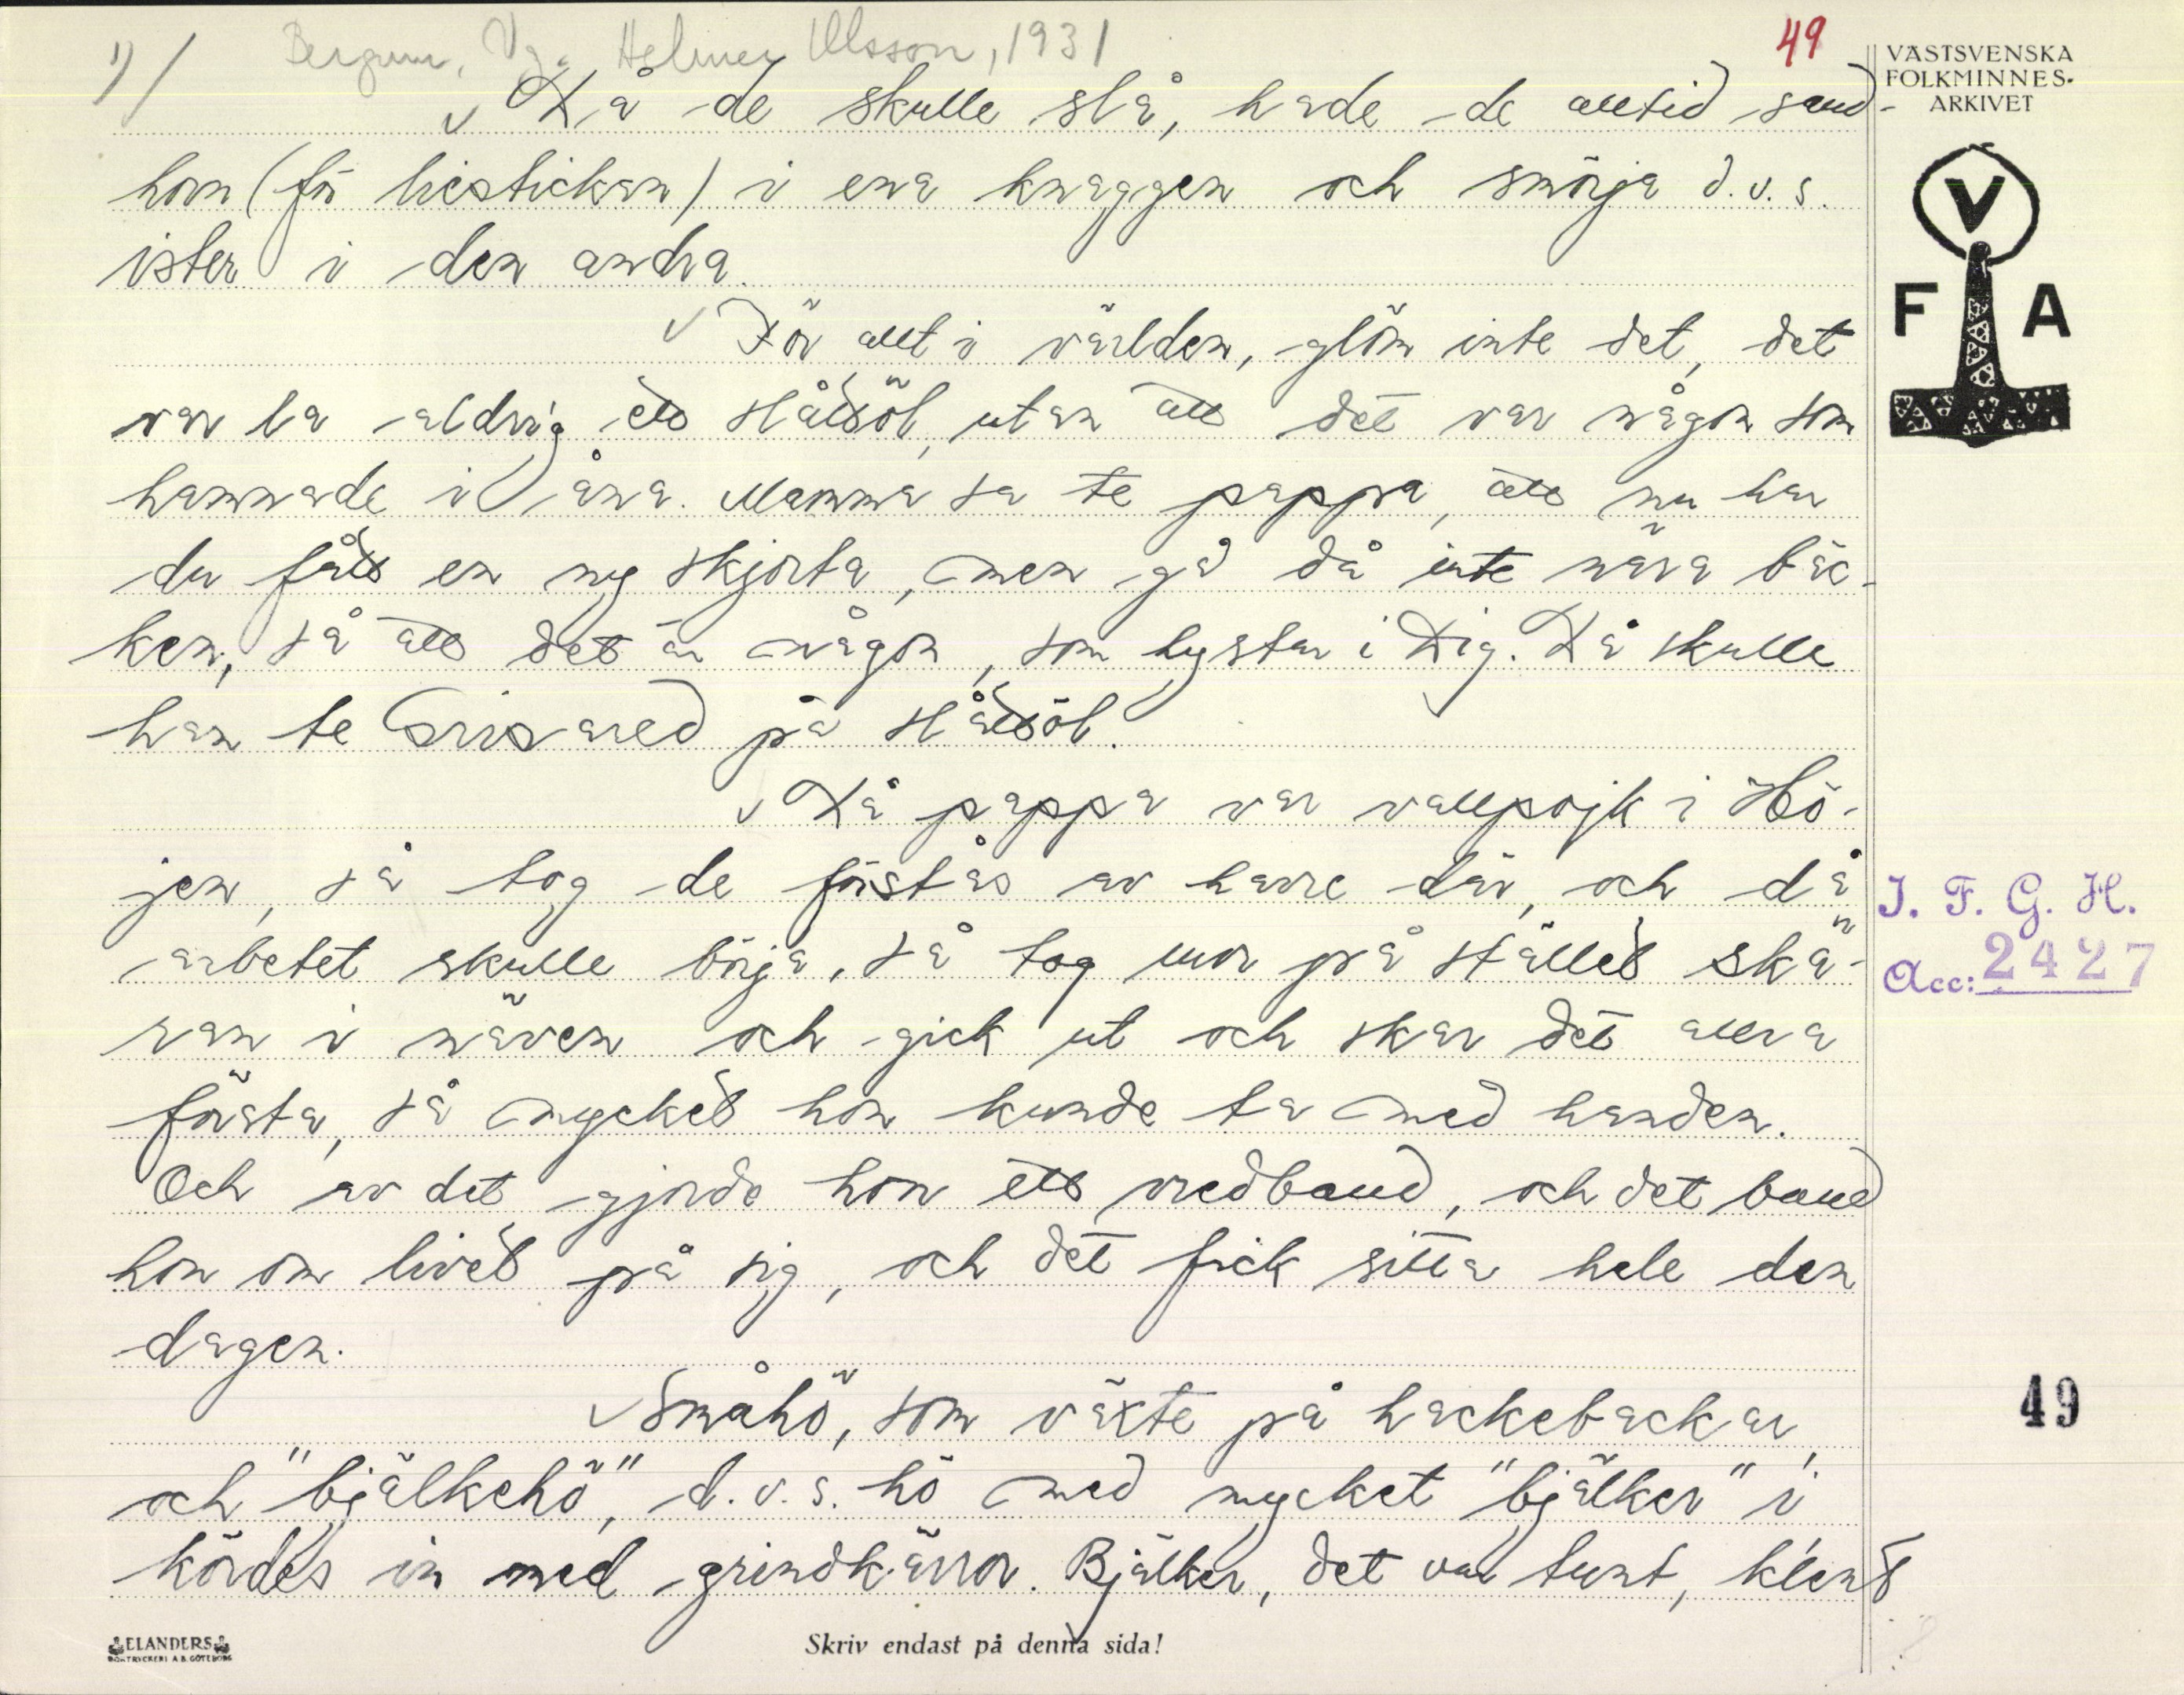 1) Bergum, Vg. Helmer Olsson, 1931 49
VÄSTSVENSKA
FOLKMINNES-
ARKIVET
V
F A
Då de skulle slå, hade de alltid sand-
horn (för liestickan) i ena knaggen och smörja d.v.s.
ister i den andra.
För allt i världen, glöm inte det, det
var la aldrig ett slåttöl, utan att det var någon som
hamnade i åna. Mamma sa te pappa, att nu har
du fått en ny skjorta, men gå då inte nära bäc-
ken, så att det är någon, som hystar i Dig. Då skulle
han te Grisared på slåttöl.
Då pappa var vallpojk i Hö-
jen, så tog de förstås av havre där, och då
arbetet skulle börja, så tog mor på stället skä-
ran i näven och gick ut och skar det allra
första, så mycket hon kunde ta med handen.
Och av det gjorde hon ett vredband, och det band
hon om livet på sig, och det fick sitta hele den
dagen.
Småhö, som växte på hackebackar,
och "bjälkehö", d.v.s. hö med mycket "bjälker" i
kördes in med grindkärror. Bjälker, det var tunt, klent
J. F. G. H.
Acc: 2427
49
ELANDERS
BOKTRYCKERI A.B. GÖTEBORG
Skriv endast på denna sida!